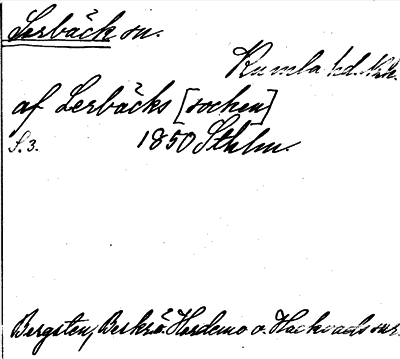 Lerbäck sn.
Kumla hd. Nke.
af Lerbäcks [socken]
S. 3. 1850 Sthlm.
Bergsten, Beskr. ö. Hardemo o. Hackvads snr.